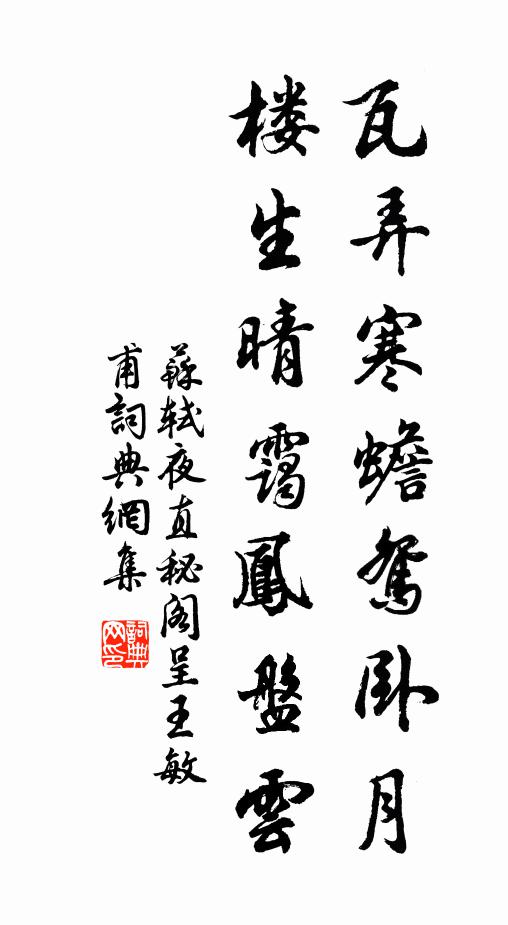 瓦弄寒蟾鴛卧月
楼生晴靄鳳盤雲
蘇軾夜直秘阁呈王敏
甫詞典網集
詞典网印